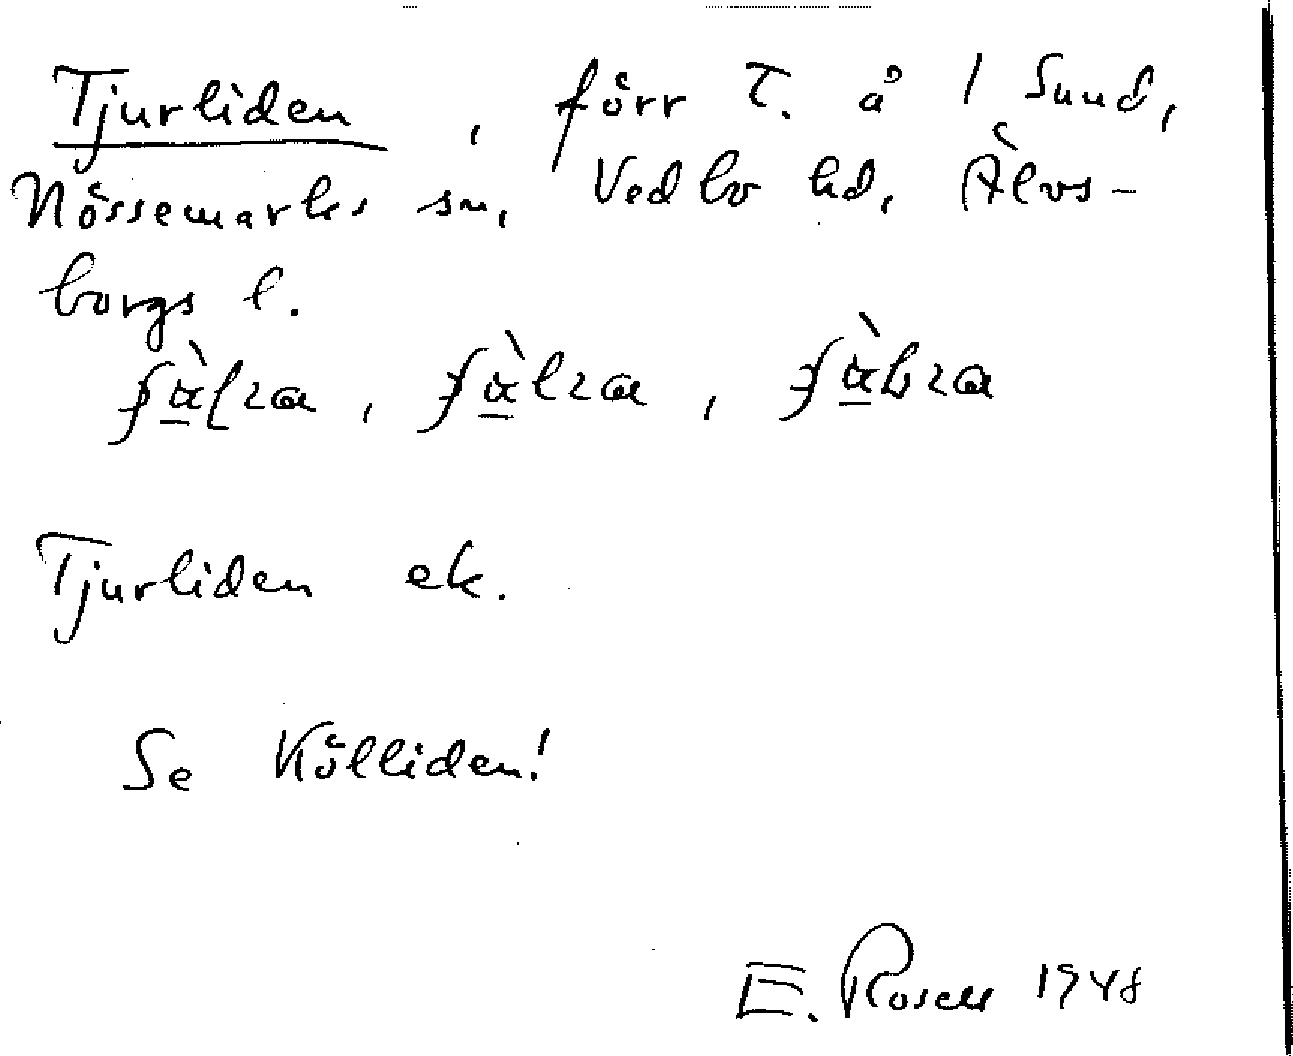 Tjurliden, förr T. å 1 Sund,
Nössemarks sn, Vedbo hd, Älvs-
borgs l.
Tjurliden ek.
Se Kölliden!
E. Rosell 1948